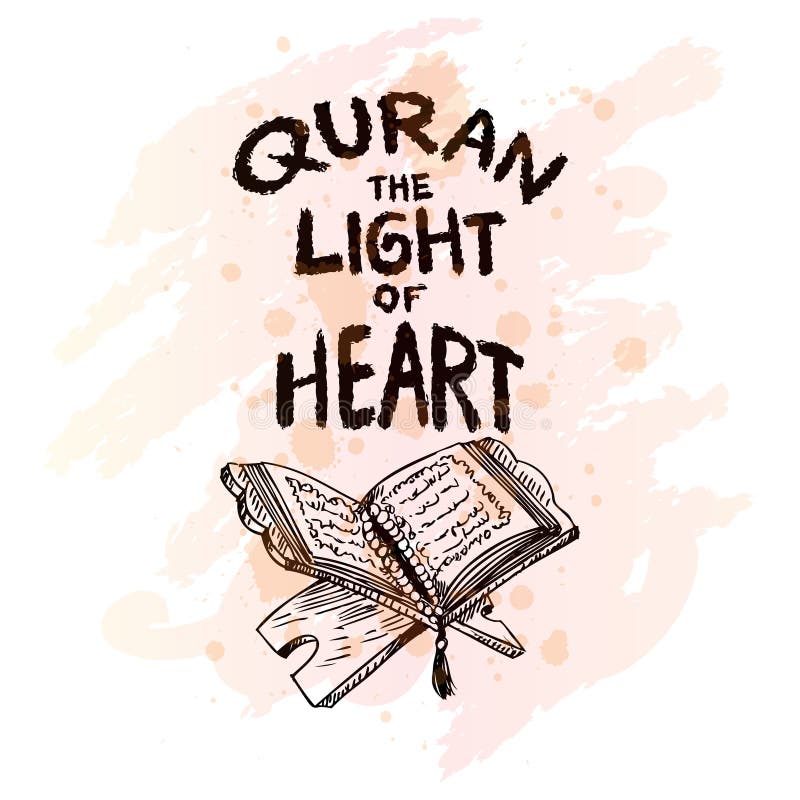 QURAN
THE
LIGHT
OF
HEART